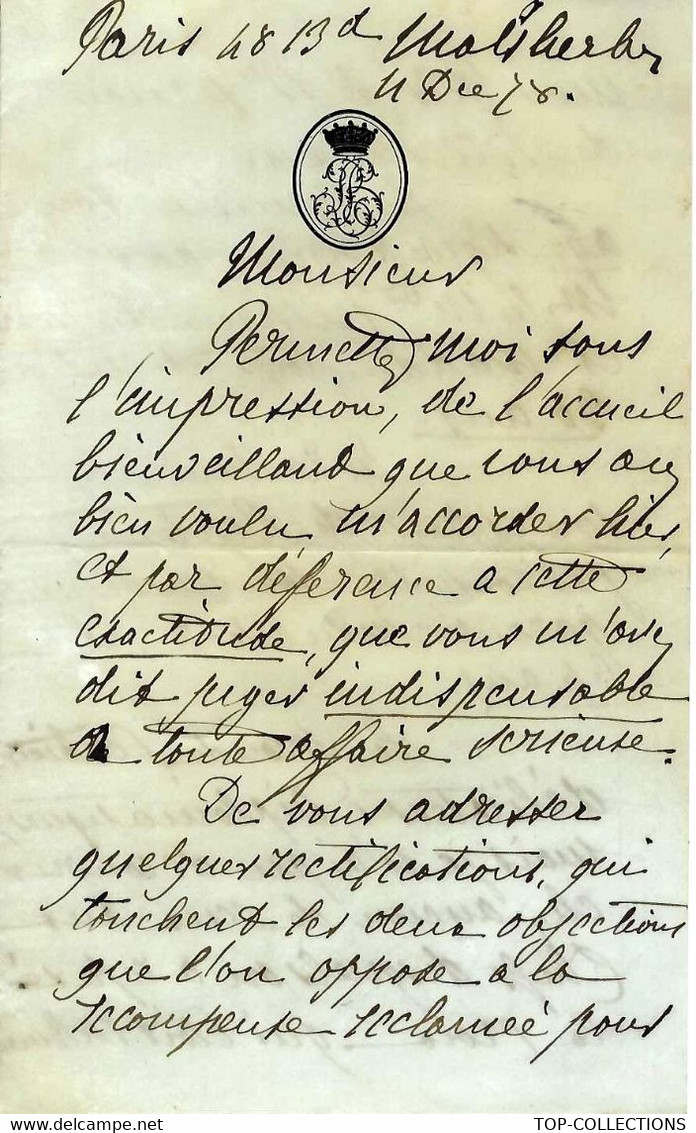 Paris 48 Bd Malsherbes
11 Dec 78.
Monsieur
Permettez moi sous
l'impression, de l'accueil
bienveillant que vous avez
bien voulu m'accorder hier,
et par déférence a cette
exactitude, que vous m'avez
dit juger indispensable
a toute affaire serieuse.
De vous adresser
quelques rectifications, qui
touchent les deux objections
que l'on oppose a la
recompense reclameé pour
TOP-COLLECTIONS
www.delcampe.net